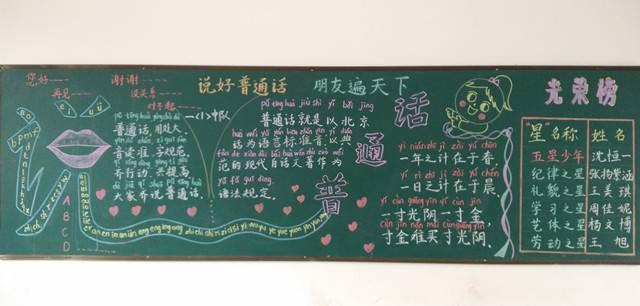 您好
再见
谢谢
没关系
对不起
说好普通话
朋友遍天下
一(1)中队
ei
üü
bpmf
普通话,用处大,
音读准,字
齐行动,共提高,
大家齐说普通话.
ABCD
pǔ tōng huà jiù shì yǐ běi jīng
普通话就是以北京
话为语言标准音,以典
范的现代白话文著作为
yǔ fǎ guī dìng
语法规定.
普
通
话
yì nián zhī jì zài yú chūn
一年之计在于春,
yí rì zhī jì zài yú chén
一日之计在于晨.
yí cùn guāng yīn yí cùn jīn
一寸光阴一寸金,
cùn jīn nán mǎi cùn guāng yīn
寸金难买寸光阴.
光荣榜
"星"名称 姓名
五星少年 沈恒一
纪律之星
礼貌之星 王美琪
学习之星 周佳妮
艺体之星 杨文博
劳动之星 王旭